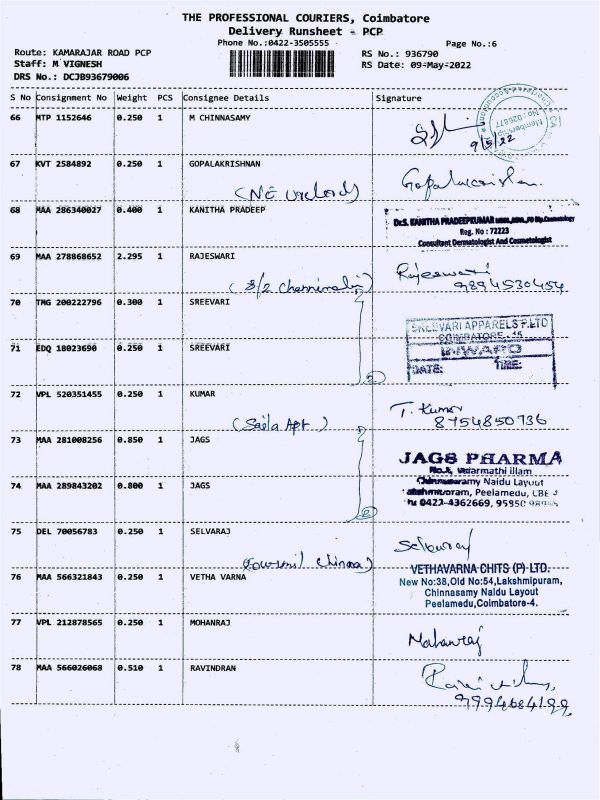 THE PROFESSIONAL COURIERS, Coimbatore
Delivery Runsheet - PCP
Phone No.:0422-3505555
Page No.:6
Route: KAMARAJAR ROAD PCP
Staff: M VIGNESH
DRS No.: DCJB93679006
RS No.: 936790
RS Date: 09-May-2022
S No Consignment No Weight PCS Consignee Details Signature
66 MTP 1152646 0.250 1 M CHINNASAMY
9/5/22
CA
Chartered Accountants
Membership No: 026877
67 KVT 2584892 0.250 1 GOPALAKRISHNAN
Gopalakrishnan
68 MAA 286340027 0.400 1 KANITHA PRADEEP
Dr.S. KANITHA PRADEEPKUMAR
Reg. No : 72223
Consultant Dermatologist And Cosmetologist
69 MAA 278868652 2.295 1 RAJESWARI
Rajeswari
9894530454
70 TMG 200222796 0.300 1 SREEVARI
SREEVARI APPARELS P.LTD
COIMBATORE - 15
INWARD
DATE: TIME:
71 EDQ 18023690 0.250 1 SREEVARI
2
72 VPL 520351455 0.250 1 KUMAR
T. Kumar
8754850736
(Saila Apt.)
73 MAA 281008256 0.850 1 JAGS
JAGS PHARMA
illam
Chinnasamy Naidu Layout
Peelamedu, CBE
0422-4362669,
74 MAA 289843202 0.800 1 JAGS
2
75 DEL 70056783 0.250 1 SELVARAJ
Selvaraj
76 MAA 566321843 0.250 1 VETHA VARNA
VETHAVARNA CHITS (P) LTD.
New No:38,Old No:54,Lakshmipuram,
Chinnasamy Naidu Layout
Peelamedu,Coimbatore-4.
77 VPL 212878565 0.250 1 MOHANRAJ
Mohanraj
78 MAA 566026068 0.510 1 RAVINDRAN
9994684199